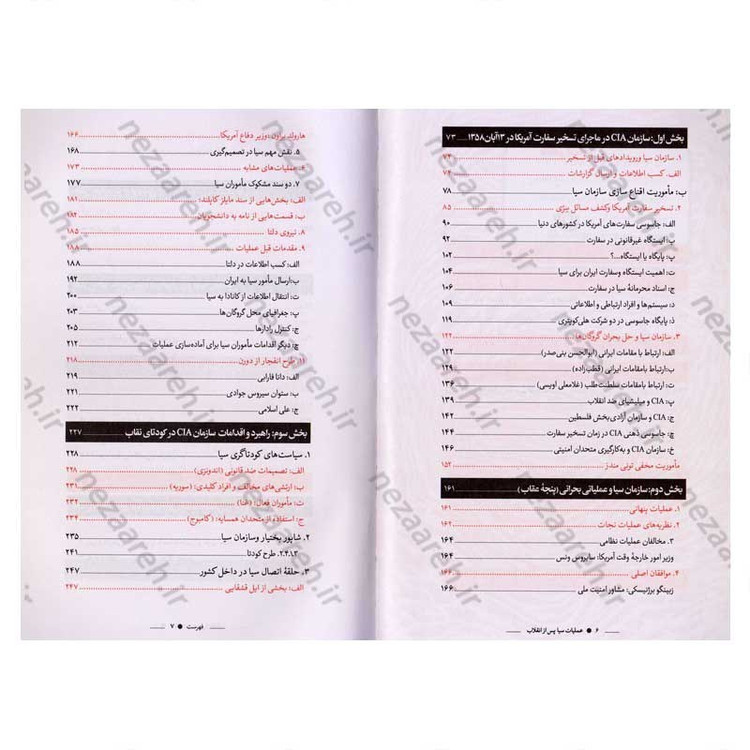 بخش اول: سازمان CIA در ماجرای تسخیر سفارت آمریکا در ۱۳آبان۱۳۵۸ ..... ۷۳
۱. سازمان سیا ورویدادهای قبل از تسخیر ..... ۷۴
الف. کسب اطلاعات و ارسال گزارشات ..... ۷۴
ب: مأموریت اقناع سازی سازمان سیا ..... ۷۸
۲. تسخیر سفارت آمریکا وکشف مسائل بیّزی ..... ۸۵
الف: جاسوسی سفارت‌های آمریکا در کشورهای دنیا ..... ۹۰
ب: ایستگاه غیرقانونی در سفارت ..... ۹۲
پ: پایگاه یا ایستگاه...؟ ..... ۱۰۲
ت: اهمیت ایستگاه وسفارت ایران برای سیا ..... ۱۰۴
ج: اسناد محرمانهٔ سیا در سفارت ..... ۱۰۶
د: سیستم‌ها و افراد ارتباطی و اطلاعاتی ..... ۱۰۹
ذ: پایگاه جاسوسی در دو شرکت هلی‌کوپتری ..... ۱۲۰
۳. سازمان سیا و حل بحران گروگان‌ها ..... ۱۲۲
الف: ارتباط با مقامات ایرانی (ابوالحسن بنی‌صدر) ..... ۱۲۲
ب:ارتباط بامقامات ایرانی (قطب‌زاده) ..... ۱۲۹
ت: ارتباط بامقامات سلطنت‌طلب (غلامعلی اویسی) ..... ۱۳۶
پ: CIA و میلیشیای ضد انقلاب ..... ۱۳۹
ج: CIA و سازمان آزادی‌بخش فلسطین ..... ۱۴۲
چ: جاسوسی ذهنی CIA در زمان تسخیر سفارت ..... ۱۴۴
خ: سازمان CIA و به‌کارگیری متحدان امنیتی ..... ۱۴۶
مأموریت مخفی تونی مندز ..... ۱۵۲
بخش دوم: سازمان سیا و عملیاتی بحرانی (پنجهٔ عقاب) ..... ۱۶۱
۱. عملیات پنهانی ..... ۱۶۱
۲. نظریه‌های عملیات نجات ..... ۱۶۲
۳. مخالفان عملیات نظامی ..... ۱۶۴
وزیر امور خارجهٔ وقت آمریکا: سایروس ونس ..... ۱۶۴
۴. موافقان اصلی ..... ۱۶۶
زبینگو برژنیسکی: مشاور امنیت ملی ..... ۱۶۶
۶ ● عملیات سیا پس از انقلاب
هارولد براون: وزیر دفاع آمریکا ..... ۱۶۶
۵. نقش مهم سیا در تصمیم‌گیری ..... ۱۶۸
۶. عملیات‌های مشابه ..... ۱۷۳
۷. دو سند مشکوک مأموران سیا ..... ۱۷۷
الف: بخش‌هایی از سند مایلز کاپلند: ..... ۱۸۱
ب: قسمت‌هایی از نامه به دانشجویان ..... ۱۸۲
۸. نیروی دلتا ..... ۱۸۵
۹. مقدمات قبل عملیات ..... ۱۸۸
الف: کسب اطلاعات در دلتا ..... ۱۸۸
ب:ارسال مأمور سیا به ایران ..... ۱۹۲
ت: انتقال اطلاعات از کانادا به سیا ..... ۲۰۰
پ: جغرافیای محل گروگان‌ها ..... ۲۰۳
ج: کنترل رادارها ..... ۲۰۵
چ: دیگر اقدامات مأموران سیا برای آماده‌سازی عملیات ..... ۲۱۲
۱۱. طرح انفجار از درون ..... ۲۱۸
الف: دانا فارابی ..... ۲۱۹
ب: ستوان سیروس جوادی ..... ۲۲۱
ج: علی اسلامی ..... ۲۲۲
بخش سوم: راهبرد و اقدامات سازمان CIA در کودتای نقاب ..... ۲۲۷
۱. سیاست‌های کودتاگری سیا ..... ۲۲۸
الف: تصمیمات ضدّقانونی (اندونزی) ..... ۲۲۸
ب: ارتشی‌های مخالف و افراد کلیدی: (سوریه) ..... ۲۳۱
ت: مأموران فعال: (غنا) ..... ۲۳۲
ج: استفاده از متحدان همسایه: (کامبوج) ..... ۲۳۴
۲. شاپور بختیار وسازمان سیا ..... ۲۳۵
۲.۴.۱۳. طرح کودتا ..... ۲۴۱
۳. حلقهٔ اتصال سیا در داخل کشور ..... ۲۴۷
الف: بخشی از ایل قشقایی ..... ۲۴۷
فهرست ● ۷
nezaareh.ir